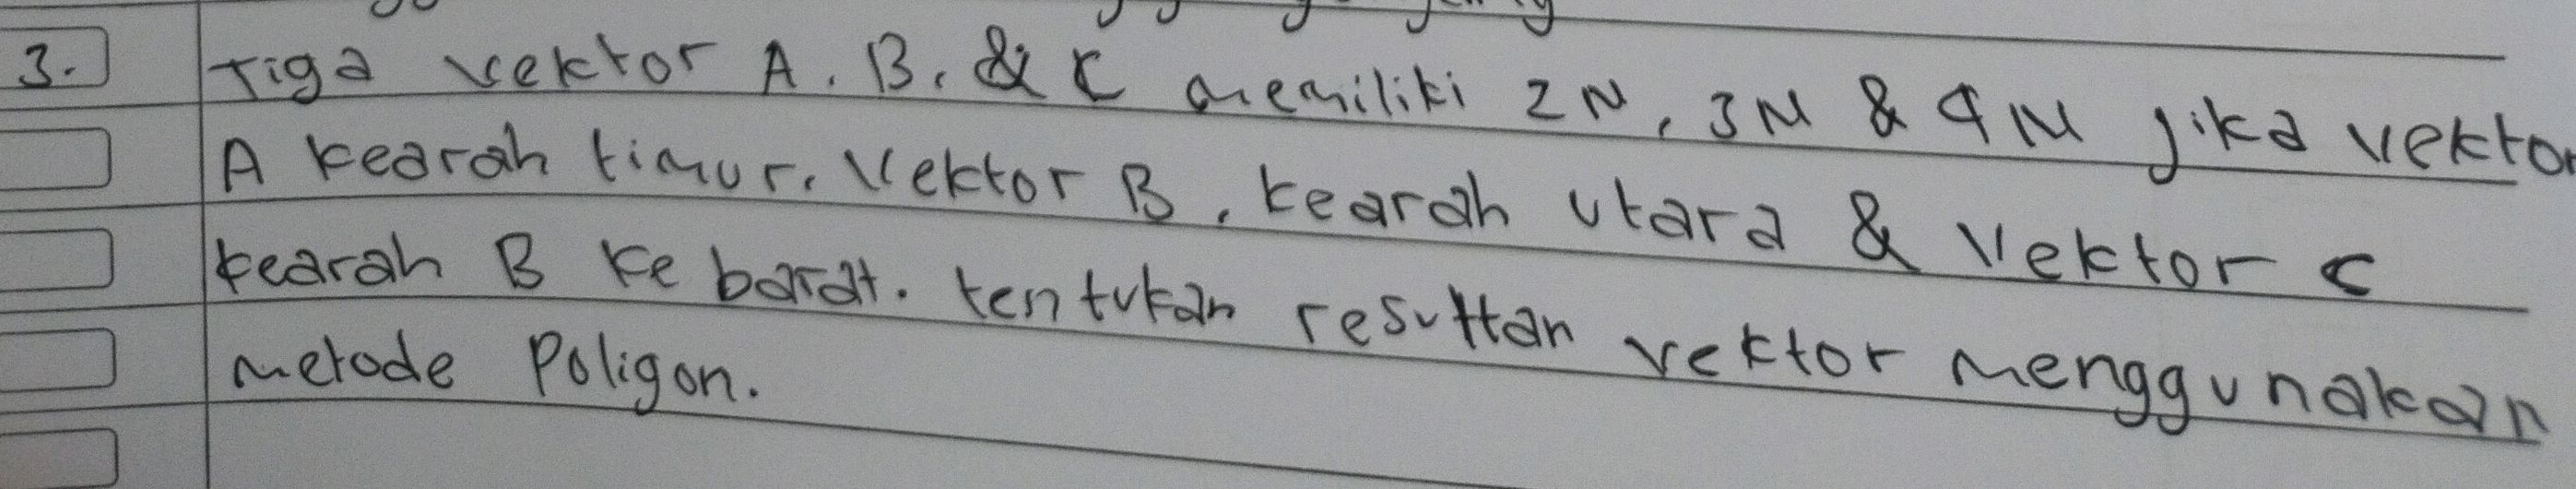 3. Tiga vektor A, B, & C memiliki 2N, 3N & 4N jika vektor
A kearah timur, Vektor B, kearah utara & Vektor C
kearah B ke barat. tentukan resultan vektor menggunakan
metode Poligon.